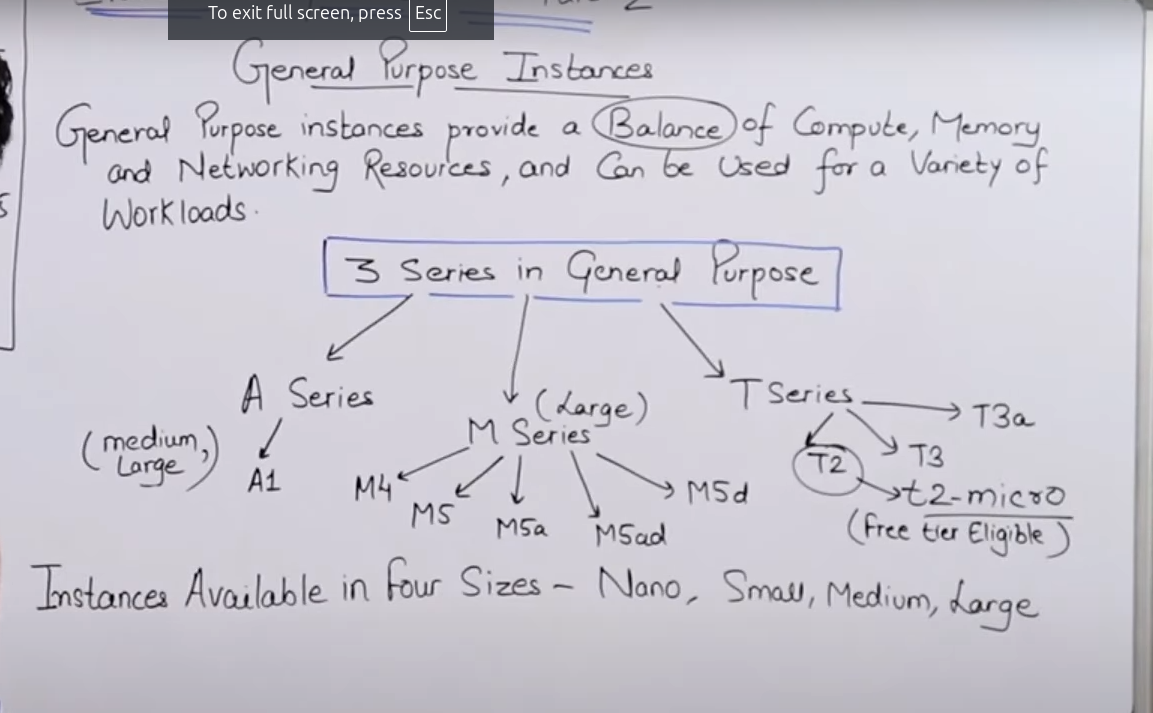 To exit full screen, press Esc
General Purpose Instances
General Purpose instances provide a Balance of Compute, Memory
and Networking Resources, and Can be Used for a Variety of
Workloads.
3 Series in General Purpose
A Series
(medium,
Large)
A1
(Large)
M Series
M4
M5
M5a
M5ad
M5d
T Series
T3a
T3
T2
t2-micro
(free tier Eligible)
Instances Available in four Sizes - Nano, Small, Medium, Large